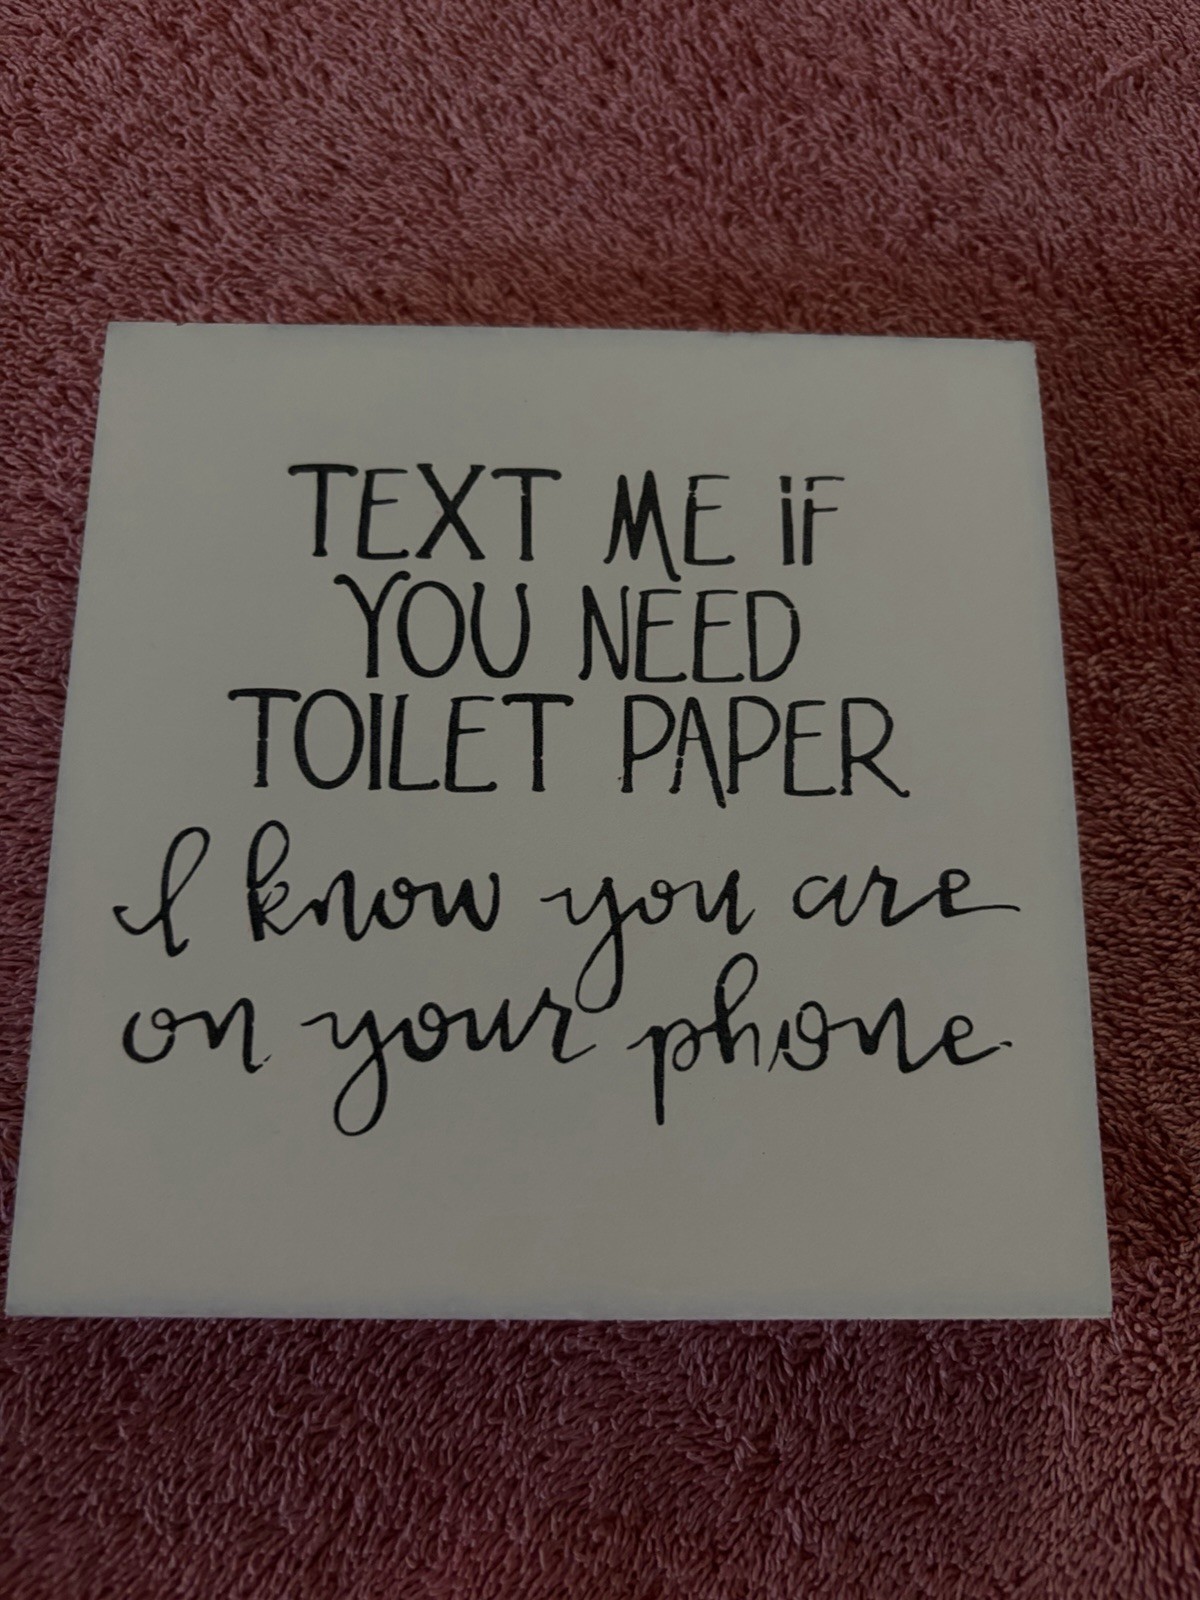 TEXT ME IF
YOU NEED
TOILET PAPER
I know you are
on your phone